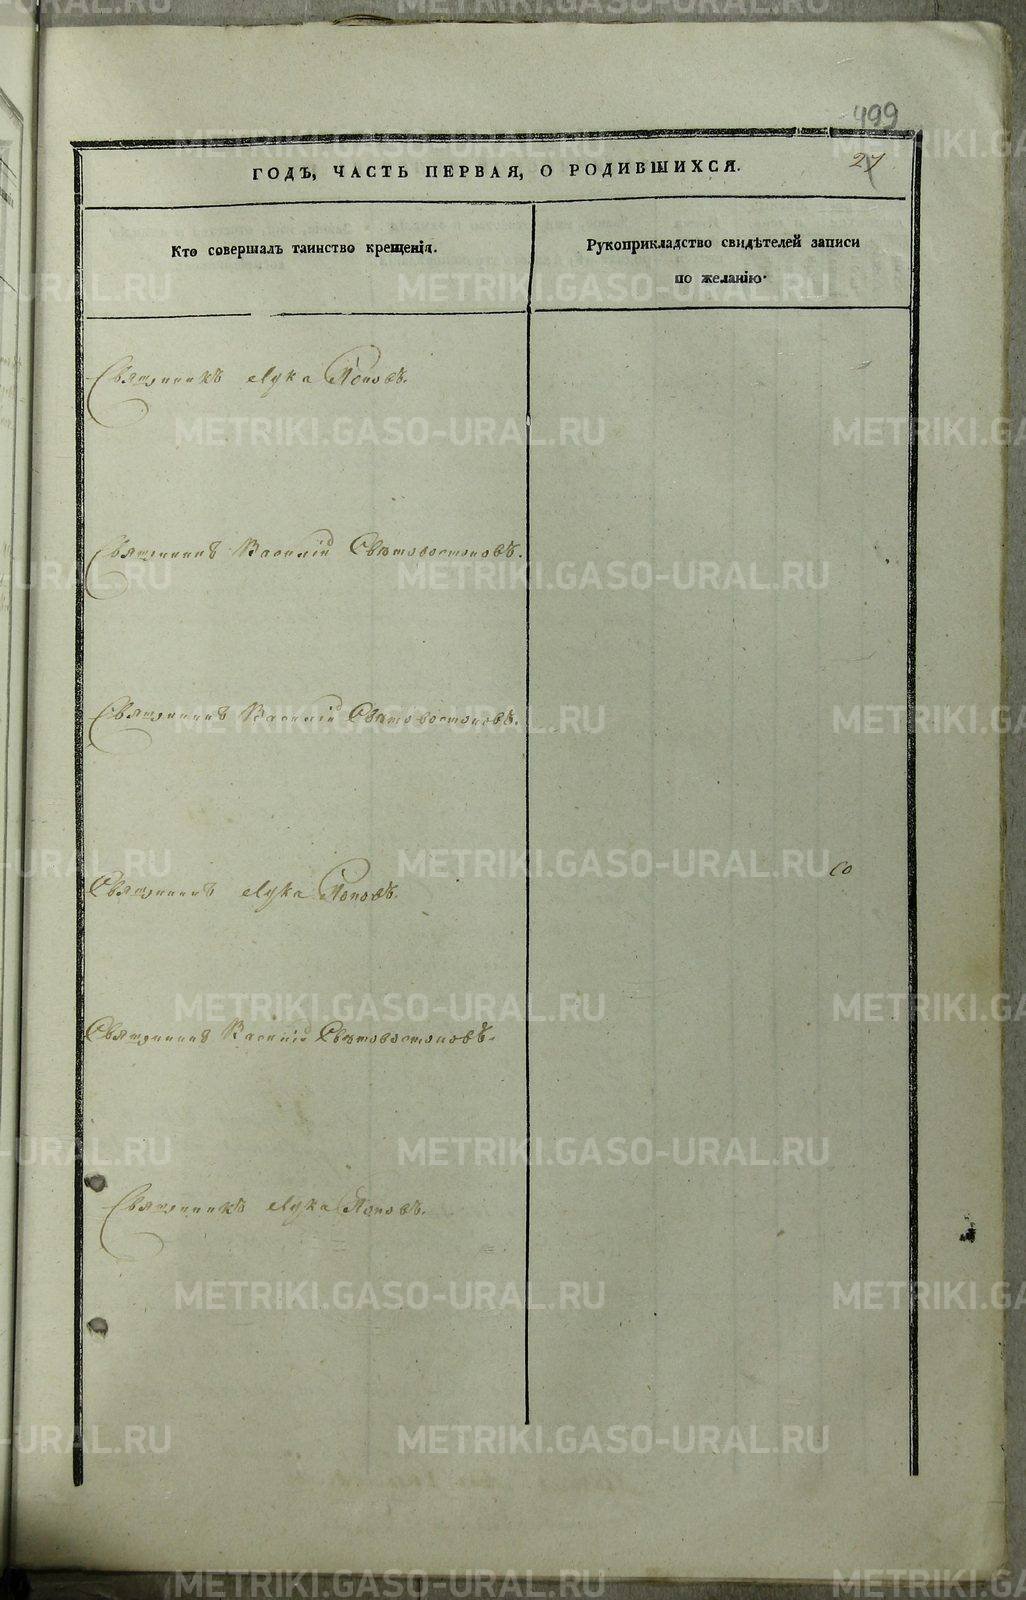 499
27
ГОДЪ, ЧАСТЬ ПЕРВАЯ, О РОДИВШИХСЯ.
Кто совершалъ таинство крещенія.
Рукоприкладство свидѣтелей записи
по желанію.
Священникъ Лука Поповъ.
Священникъ Василій Свѣтовостоковъ.
Священникъ Василій Свѣтовостоковъ.
Священникъ Лука Поповъ.
Священникъ Василій Свѣтовостоковъ.
Священникъ Лука Поповъ.
METRIKI.GASO-URAL.RU